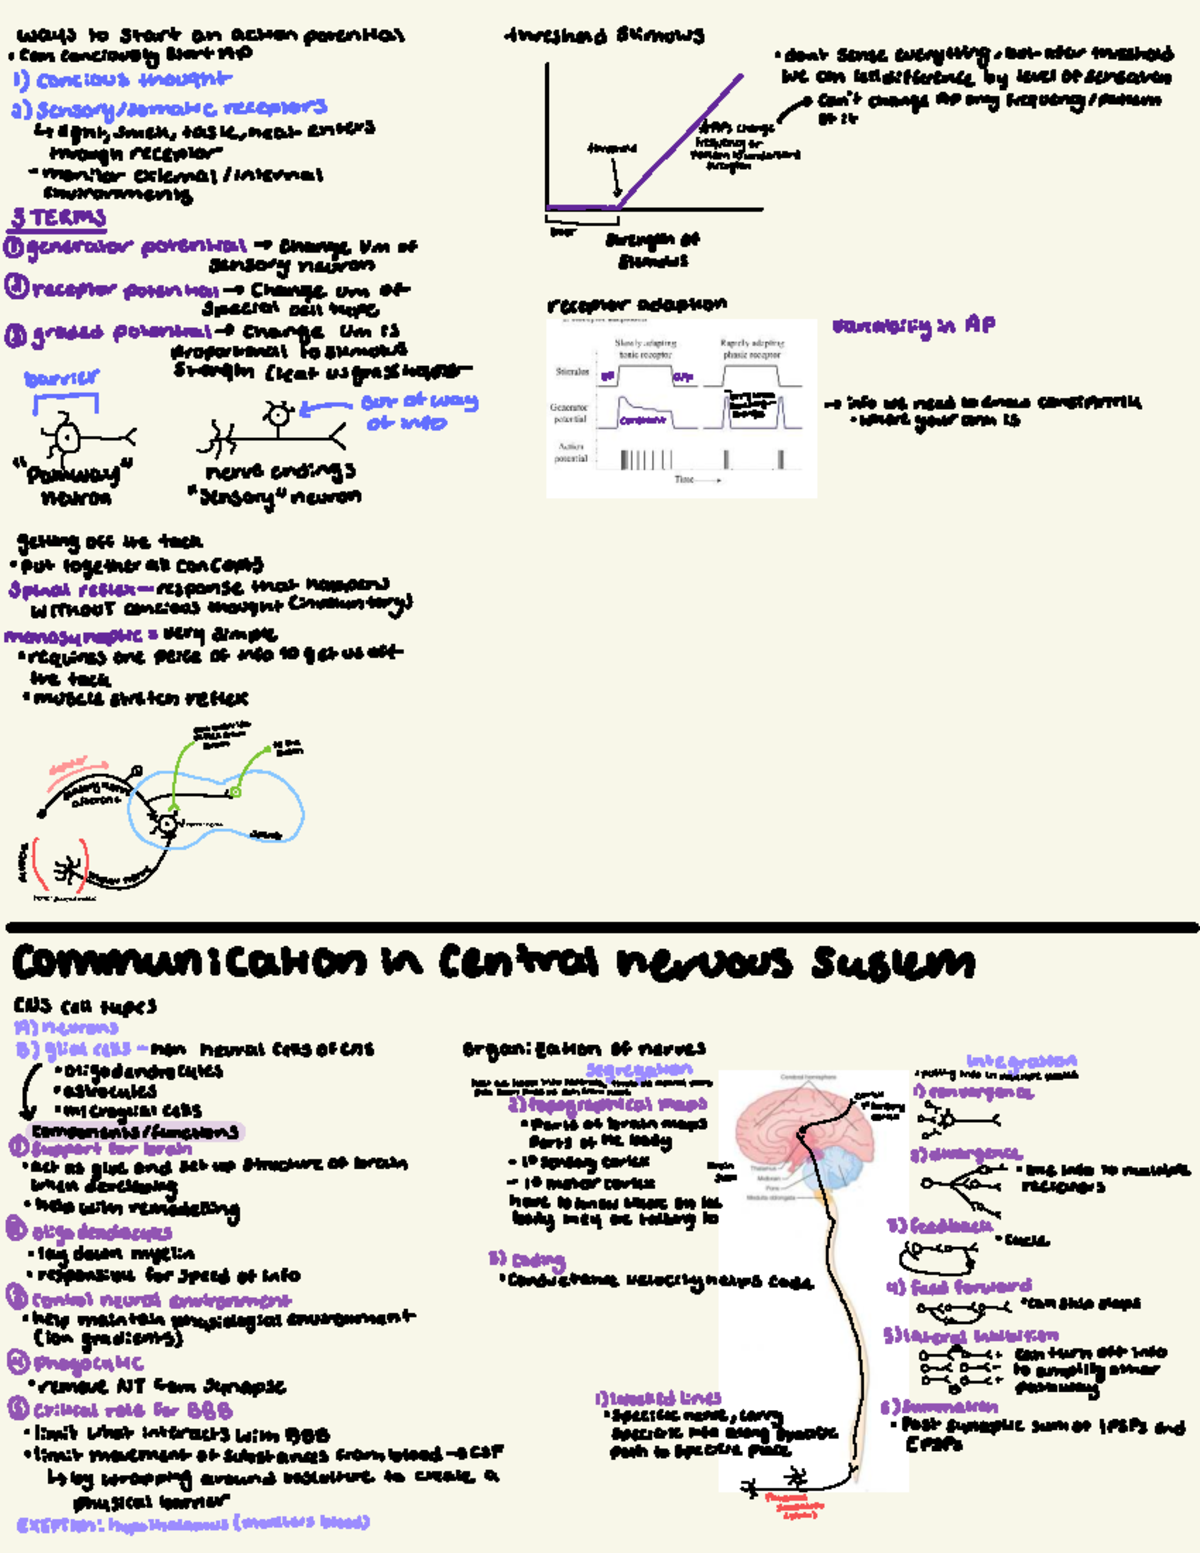 ways to start an action potential
• Can conciously start AP
1) concious thought
2) Sensory/somatic receptors
↳ light, smell, taste, heat enters
through receptor
- monitor external/internal
environments
3 TERMS
① generator potential → change Vm of
sensory neuron
② receptor potential → Change Vm of
special cell type
③ graded potential → Change Vm is
proportional to stimulus
strength
barrier
"Pathway"
neuron
out of way
of info
nerve endings
"Sensory" neuron
getting off the tack
• put together all concepts
Spinal reflex — response that happens
WITHOUT concious thought (involuntary)
monosynaptic = very simple
• requires one peice of info to get us off
the tack
• muscle stretch reflex
sensory nerve
threshold stimulus
threshold
Strength of
Stimulus
• don't sense everything, but after threshold
we can tell difference by level of sensation
→ can't change AP only frequency/pattern
of it
receptor adaption
Slowly adapting
tonic receptor
Rapidly adapting
phasic receptor
Stimulus
on
Generator
potential
Constant
Action
potential
Time
variability in AP
→ info we need to know constantly
• where your arm is
Communication in Central nervous System
CNS cell types
A) neurons
B) glial cells - non neural cells of CNS
• oligodendrocytes
• astrocytes
• microglial cells
Components/functions
① Support for brain
• act as glue and set up structure of brain
when developing
• help with remodelling
② oligodendrocytes
• lay down myelin
• responsible for speed of info
③ Control neural environment
• help maintain physiological environment
(ion gradients)
④ Phagocytic
• remove NT from synapse
⑤ Critical role for BBB
• limit what interacts with BBB
• limit movement of substances from blood → CSF
↳ by wrapping around vasculature to create a
physical barrier
EXEPTION: hypothalamus (monitors blood)
Organization of nerves
Segregation
2) topographical maps
• Parts of brain maps
parts of the body
- 1° sensory cortex
- 1° motor cortex
have to know where on the
body they are talking to
3) Coding
• Conductance velocity helps code
1) labelled lines
• Specific nerve, carry
specific info along specific
path to specific place
Cerebral hemisphere
Thalamus
Midbrain
Pons
Medulla oblongata
Brain
Stem
Integration
1) convergence
2) divergence
• one info to multiple
receivers
3) feedback
• cycle
4) feed forward
• can skip steps
5) lateral inhibition
can turn off info
to amplify other
pathway
6) Summation
• Post synaptic sum of IPSPs and
EPSPs